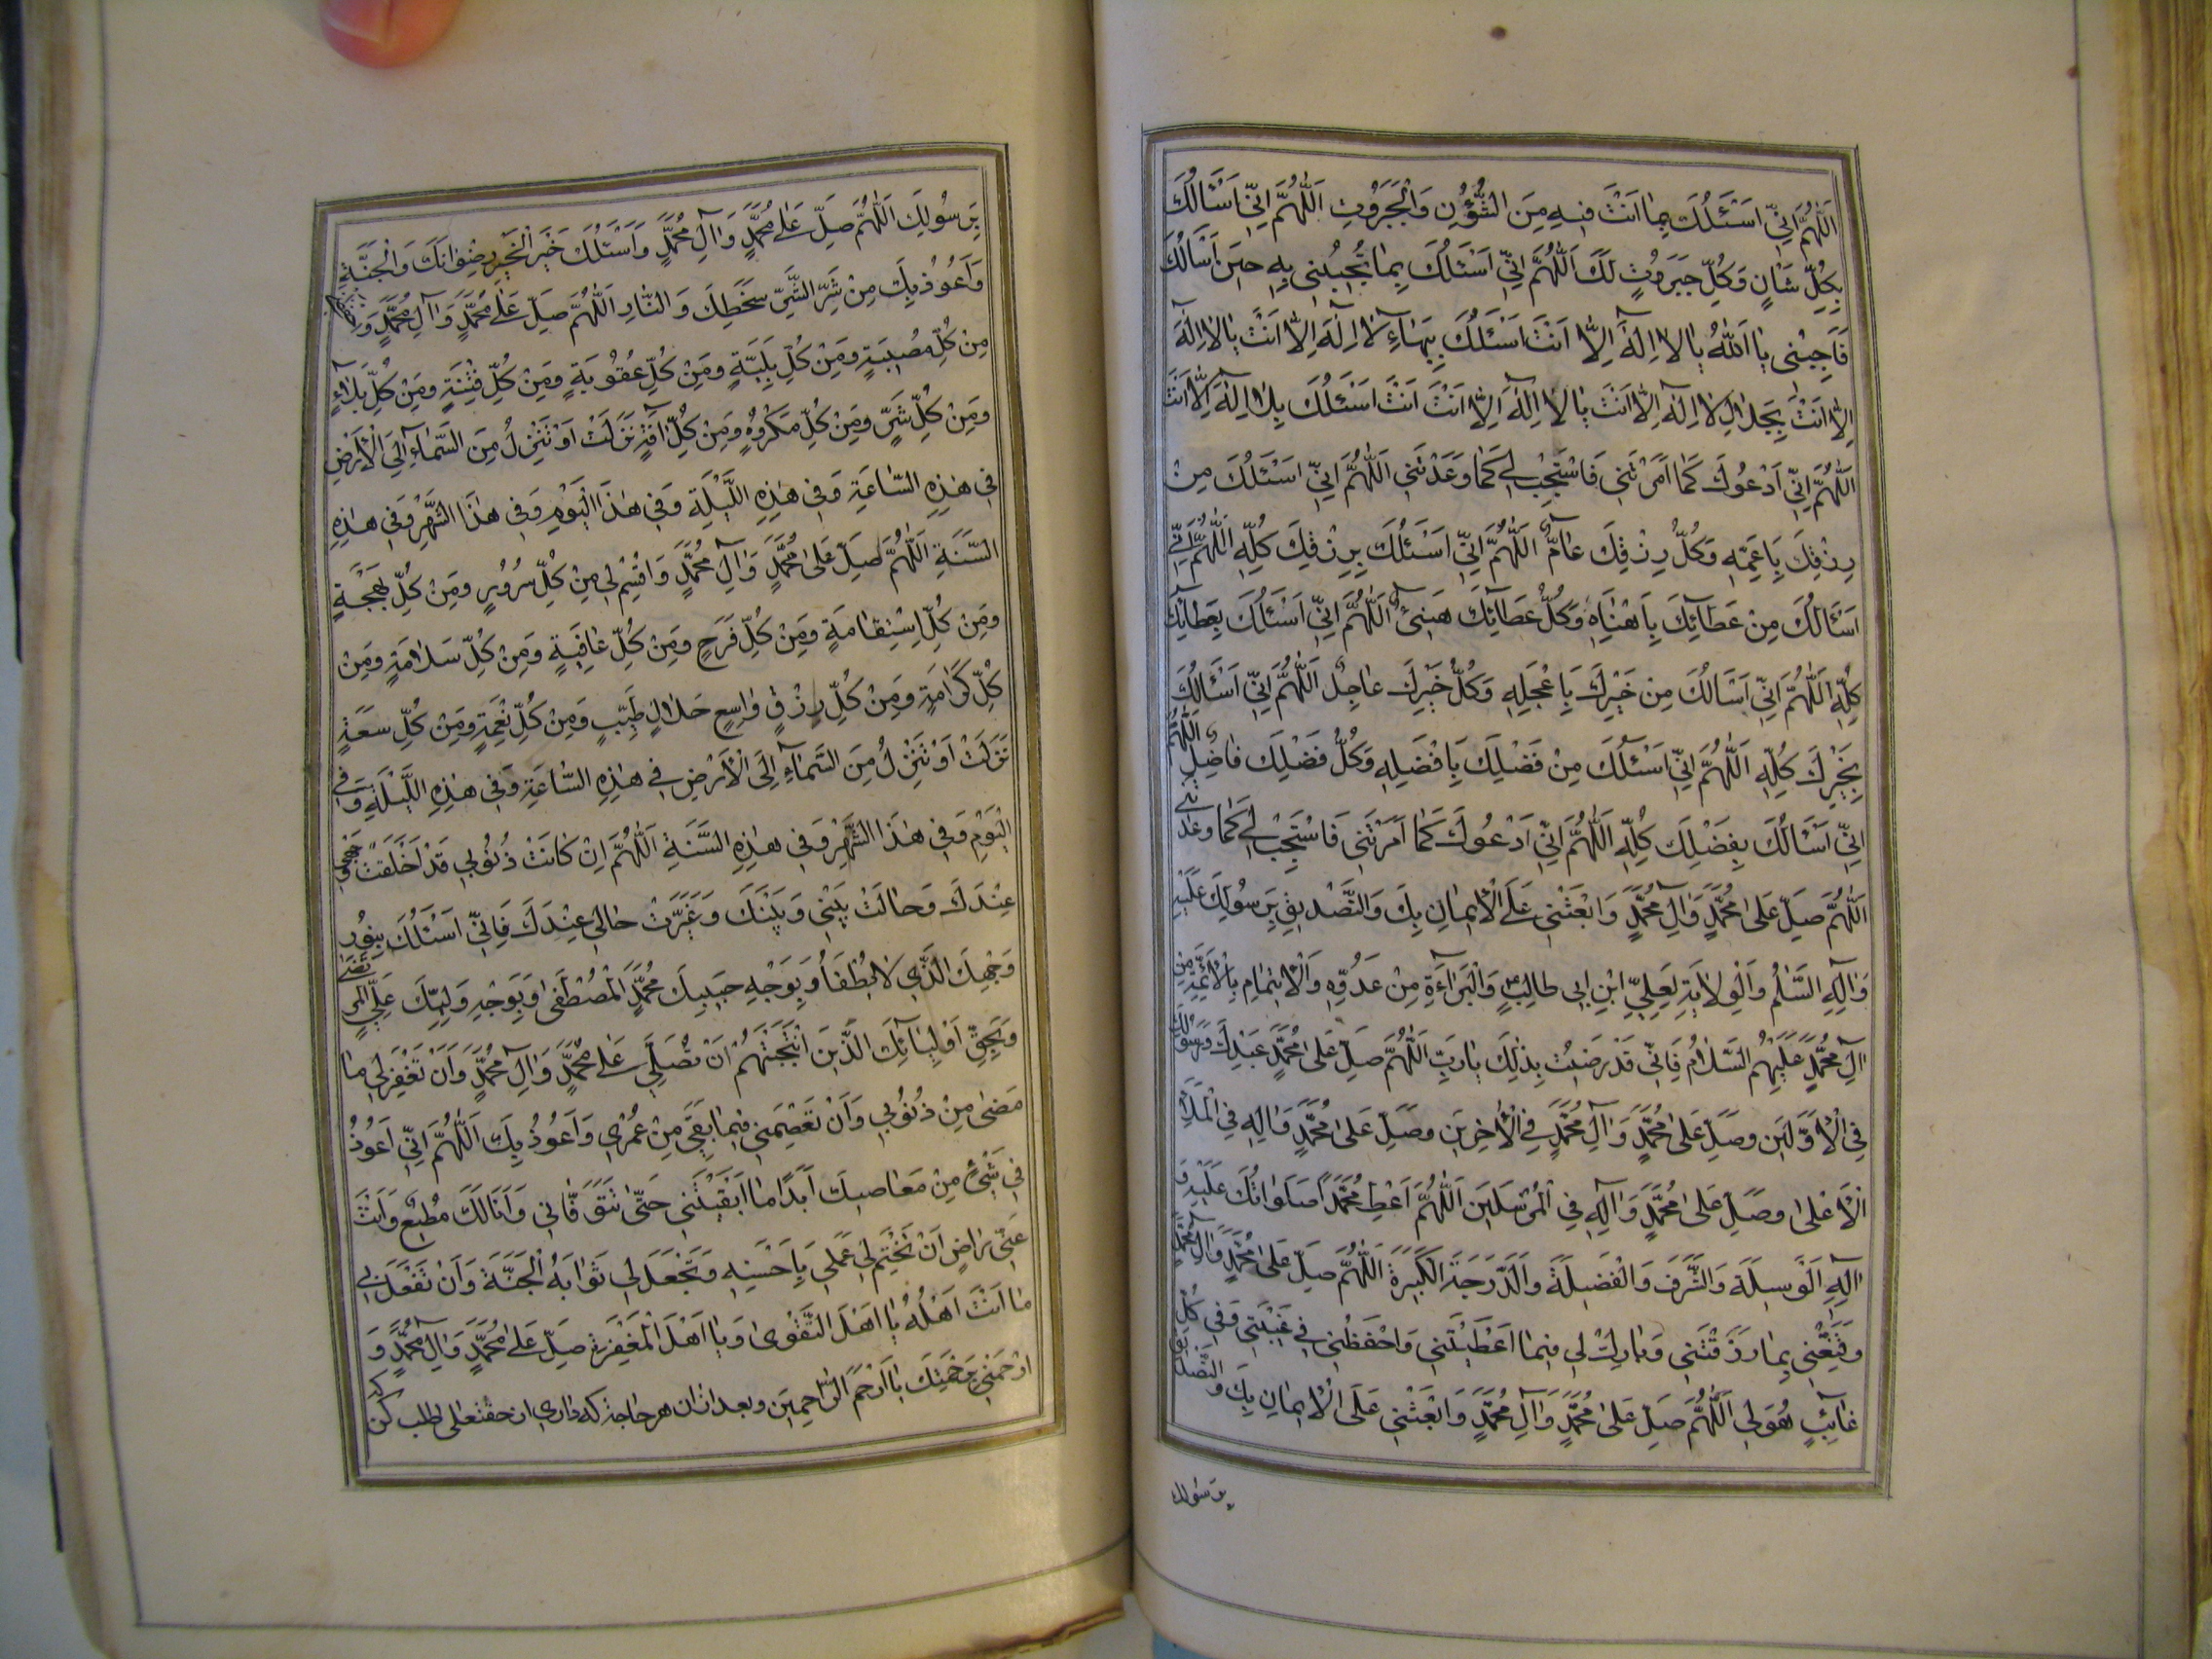 اَللّٰهُمَّ اِنّى اَسْئَلُكَ بِما اَنْتَ فيهِ مِنَ الشُّؤُنِ وَالْجَبَرُوتِ اَللّٰهُمَّ اِنّى اَسْئَالُكَ
بِكُلِّ شَانٍ وَكُلِّ جَبَرُوتٍ لَكَ اَللّٰهُمَّ اِنّى اَسْئَلُكَ بِما تُجيبُنى بِهِ حينَ اَسْالُكَ
فَاَجِبْنى يا اَللّٰهُ يا لا اِلٰهَ اِلّا اَنْتَ اَسْئَلُكَ بِبَهاءِ لا اِلٰهَ اِلّا اَنْتَ يا لا اِلٰهَ
اِلّا اَنْتَ بِجَلالِ لا اِلٰهَ اِلّا اَنْتَ يا لا اِلٰهَ اِلّا اَنْتَ اَنْتَ اَسْئَلُكَ بِلا اِلٰهَ اِلّا اَنْتَ
اَللّٰهُمَّ اِنّى اَدْعُوكَ كَما اَمَرْتَنى فَاسْتَجِبْ لى كَما وَعَدْتَنى اَللّٰهُمَّ اِنّى اَسْئَلُكَ مِنْ
رِزْقِكَ بِاَعَمِّهِ وَكُلُّ رِزْقِكَ عامٌّ اَللّٰهُمَّ اِنّى اَسْئَلُكَ بِرِزْقِكَ كُلِّهِ اَللّٰهُمَّ اِنّى
اَسْئَالُكَ مِنْ عَطائِكَ بِاَهْنَاِهِ وَكُلُّ عَطائِكَ هَنىءٌ اَللّٰهُمَّ اِنّى اَسْئَلُكَ بِعَطائِكَ
كُلِّهِ اَللّٰهُمَّ اِنّى اَسْئَالُكَ مِن خَيْرِكَ بِاَعْجَلِهِ وَكُلُّ خَيْرِكَ عاجِلٌ اَللّٰهُمَّ اِنّى اَسْئَالُكَ
بِخَيْرِكَ كُلِّهِ اَللّٰهُمَّ اِنّى اَسْئَلُكَ مِنْ فَضْلِكَ بِاَفْضَلِهِ وَكُلُّ فَضْلِكَ فاضِلٌ اَللّٰهُمَّ
اِنّى اَسْئَالُكَ بِفَضْلِكَ كُلِّهِ اَللّٰهُمَّ اِنّى اَدْعُوكَ كَما اَمَرْتَنى فَاسْتَجِبْ لى كَما وَعَدْتَنى
اَللّٰهُمَّ صَلِّ عَلى مُحَمَّدٍ وَالِ مُحَمَّدٍ وَابْعَثْنى عَلَى الْايمانِ بِكَ وَالتَّصْديقِ بِرَسُولِكَ عَلَيْهِ
وَالِهِ السَّلٰمُ وَالْوِلايَةِ لِعَلِىِّ ابْنِ ابى طالِبٍ وَالْبَراءَةِ مِنْ عَدُوِّهِ وَالْايتِمامِ بِالْاَئِمَّةِ مِن
الِ مُحَمَّدٍ عَلَيْهِمُ السَّلامُ فَاِنّى قَدْ رَضيتُ بِذٰلِكَ يا رَبِّ اَللّٰهُمَّ صَلِّ عَلى مُحَمَّدٍ عَبْدِكَ وَرَسُولِكَ
فِى الْاَوَّلينَ وصَلِّ عَلى مُحَمَّدٍ وَالِ مُحَمَّدٍ فِى الْاخِرينَ وصَلِّ عَلى مُحَمَّدٍ وَالِهِ فِى الْمَلَاِ
الْاَعْلى وصَلِّ عَلى مُحَمَّدٍ وَالِهِ فِى الْمُرْسَلينَ اَللّٰهُمَّ اَعْطِ مُحَمَّدًا صَلَواتُكَ عَلَيْهِ وَ
الِهِ الْوَسيلَةَ وَالشَّرَفَ وَالْفَضيلَةَ وَالدَّرَجَةَ الْكَبيرَةَ اَللّٰهُمَّ صَلِّ عَلى مُحَمَّدٍ وَالِ مُحَمَّدٍ
وَقَنِّعْنى بِما رَزَقْتَنى وَبارِكْ لى فيما اَعْطَيْتَنى وَاحْفَظْنى فى غَيْبَتى وَفى كُلِّ
غائِبٍ هُوَ لى اَللّٰهُمَّ صَلِّ عَلى مُحَمَّدٍ وَالِ مُحَمَّدٍ وَابْعَثْنى عَلَى الْايمانِ بِكَ وَالتَّصْديقِ
برسولك
بِرَسُولِكَ اَللّٰهُمَّ صَلِّ عَلى مُحَمَّدٍ وَالِ مُحَمَّدٍ وَاَسْئَلُكَ خَيْرَ الْخَيْرِ رِضْوانَكَ وَالْجَنَّةَ
وَاَعُوذُ بِكَ مِنْ شَرِّ الشَّرِّ سَخَطِكَ وَالنّارِ اَللّٰهُمَّ صَلِّ عَلى مُحَمَّدٍ وَالِ مُحَمَّدٍ وَ
مِن كُلِّ مُصيبَةٍ ومِنْ كُلِّ بَلِيَّةٍ ومِنْ كُلِّ عُقُوبَةٍ ومِنْ كُلِّ فِتْنَةٍ ومِنْ كُلِّ بَلاءٍ
ومِنْ كُلِّ شَرٍّ ومِنْ كُلِّ مَكْرُوهٍ ومِنْ كُلِّ افَةٍ نَزَلَتْ اَوْ تَنْزِلُ مِنَ السَّماءِ اِلَى الْاَرْضِ
فى هٰذِهِ السّاعَةِ وَفى هٰذِهِ اللَّيْلَةِ وَفى هٰذَا الْيَوْمِ وَفى هٰذَا الشَّهْرِ وَفى هٰذِهِ
السَّنَةِ اَللّٰهُمَّ صَلِّ عَلى مُحَمَّدٍ وَالِ مُحَمَّدٍ وَاقْسِمْ لى مِنْ كُلِّ سُرُورٍ ومِنْ كُلِّ بَهْجَةٍ
ومِن كُلِّ اِسْتِقامَةٍ ومِنْ كُلِّ فَرَحٍ ومِنْ كُلِّ عافِيَةٍ ومِنْ كُلِّ سَلامَةٍ ومِنْ
كُلِّ كَرامَةٍ ومِنْ كُلِّ رِزْقٍ واسِعٍ حَلالٍ طَيِّبٍ وَمِنْ كُلِّ نِعْمَةٍ ومِنْ كُلِّ سَعَةٍ
نَزَلَتْ اَوْ تَنْزِلُ مِنَ السَّماءِ اِلَى الْاَرْضِ فى هٰذِهِ السّاعَةِ وَفى هٰذِهِ اللَّيْلَةِ وَفى
الْيَوْمِ وَفى هٰذَا الشَّهْرِ وَفى هٰذِهِ السَّنَةِ اَللّٰهُمَّ اِنْ كانَتْ ذُنُوبى قَدْ اَخْلَقَتْ وَجْهى
عِنْدَكَ وَحالَتْ بَيْنى وَبَيْنَكَ وَغَيَّرَتْ حالى عِنْدَكَ فَاِنّى اَسْئَلُكَ بِنُورِ
وَجْهِكَ الَّذى لا يُطْفَاُ وَبِوَجْهِ حَبيبِكَ مُحَمَّدٍ الْمُصْطَفى وَبِوَجْهِ وَلِيِّكَ عَلِىٍّ الْمُرْتَضى
وَبِحَقِّ اَوْلِيائِكَ الَّذينَ انْتَجَبْتَهُمْ اَنْ تُصَلِّىَ عَلى مُحَمَّدٍ وَالِ مُحَمَّدٍ وَاَنْ تَغْفِرَ لى ما
مَضى مِنْ ذُنُوبى وَاَنْ تَعْصِمَنى فيما بَقِىَ مِنْ عُمْرى وَاَعُوذُ بِكَ اَللّٰهُمَّ اِنّى اَعُوذُ
فى شَىْءٍ مِنْ مَعاصيكَ اَبَدًا ما اَبْقَيْتَنى حَتّى تَتَوَفّانى وَاَنَا لَكَ مُطيعٌ وَاَنْتَ
عَنّى راضٍ اَنْ تَخْتِمَ لى عَمَلى بِاَحْسَنِهِ وَتَجْعَلَ لى ثَوابَهُ الْجَنَّةَ وَاَنْ تَفْعَلَ بى
ما اَنْتَ اَهْلُهُ يا اَهْلَ التَّقْوى وَيا اَهْلَ الْمَغْفِرَةِ صَلِّ عَلى مُحَمَّدٍ وَالِ مُحَمَّدٍ وَ
ارْحَمْنى بِرَحْمَتِكَ يا اَرْحَمَ الرّاحِمينَ وبعد ازان هر حاجة كه دارى از حقتعالى طلب كن كه